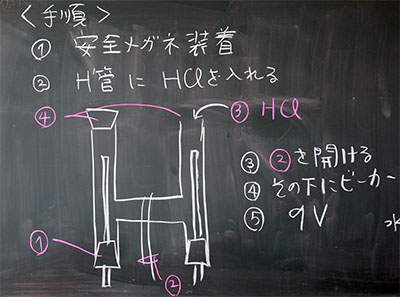 <手順>
① 安全メガネ装着
② H管に HClを入れる
④
③ HCl
③ ②を開ける
④ その下にビーカー
⑤ 9V
水
①
②